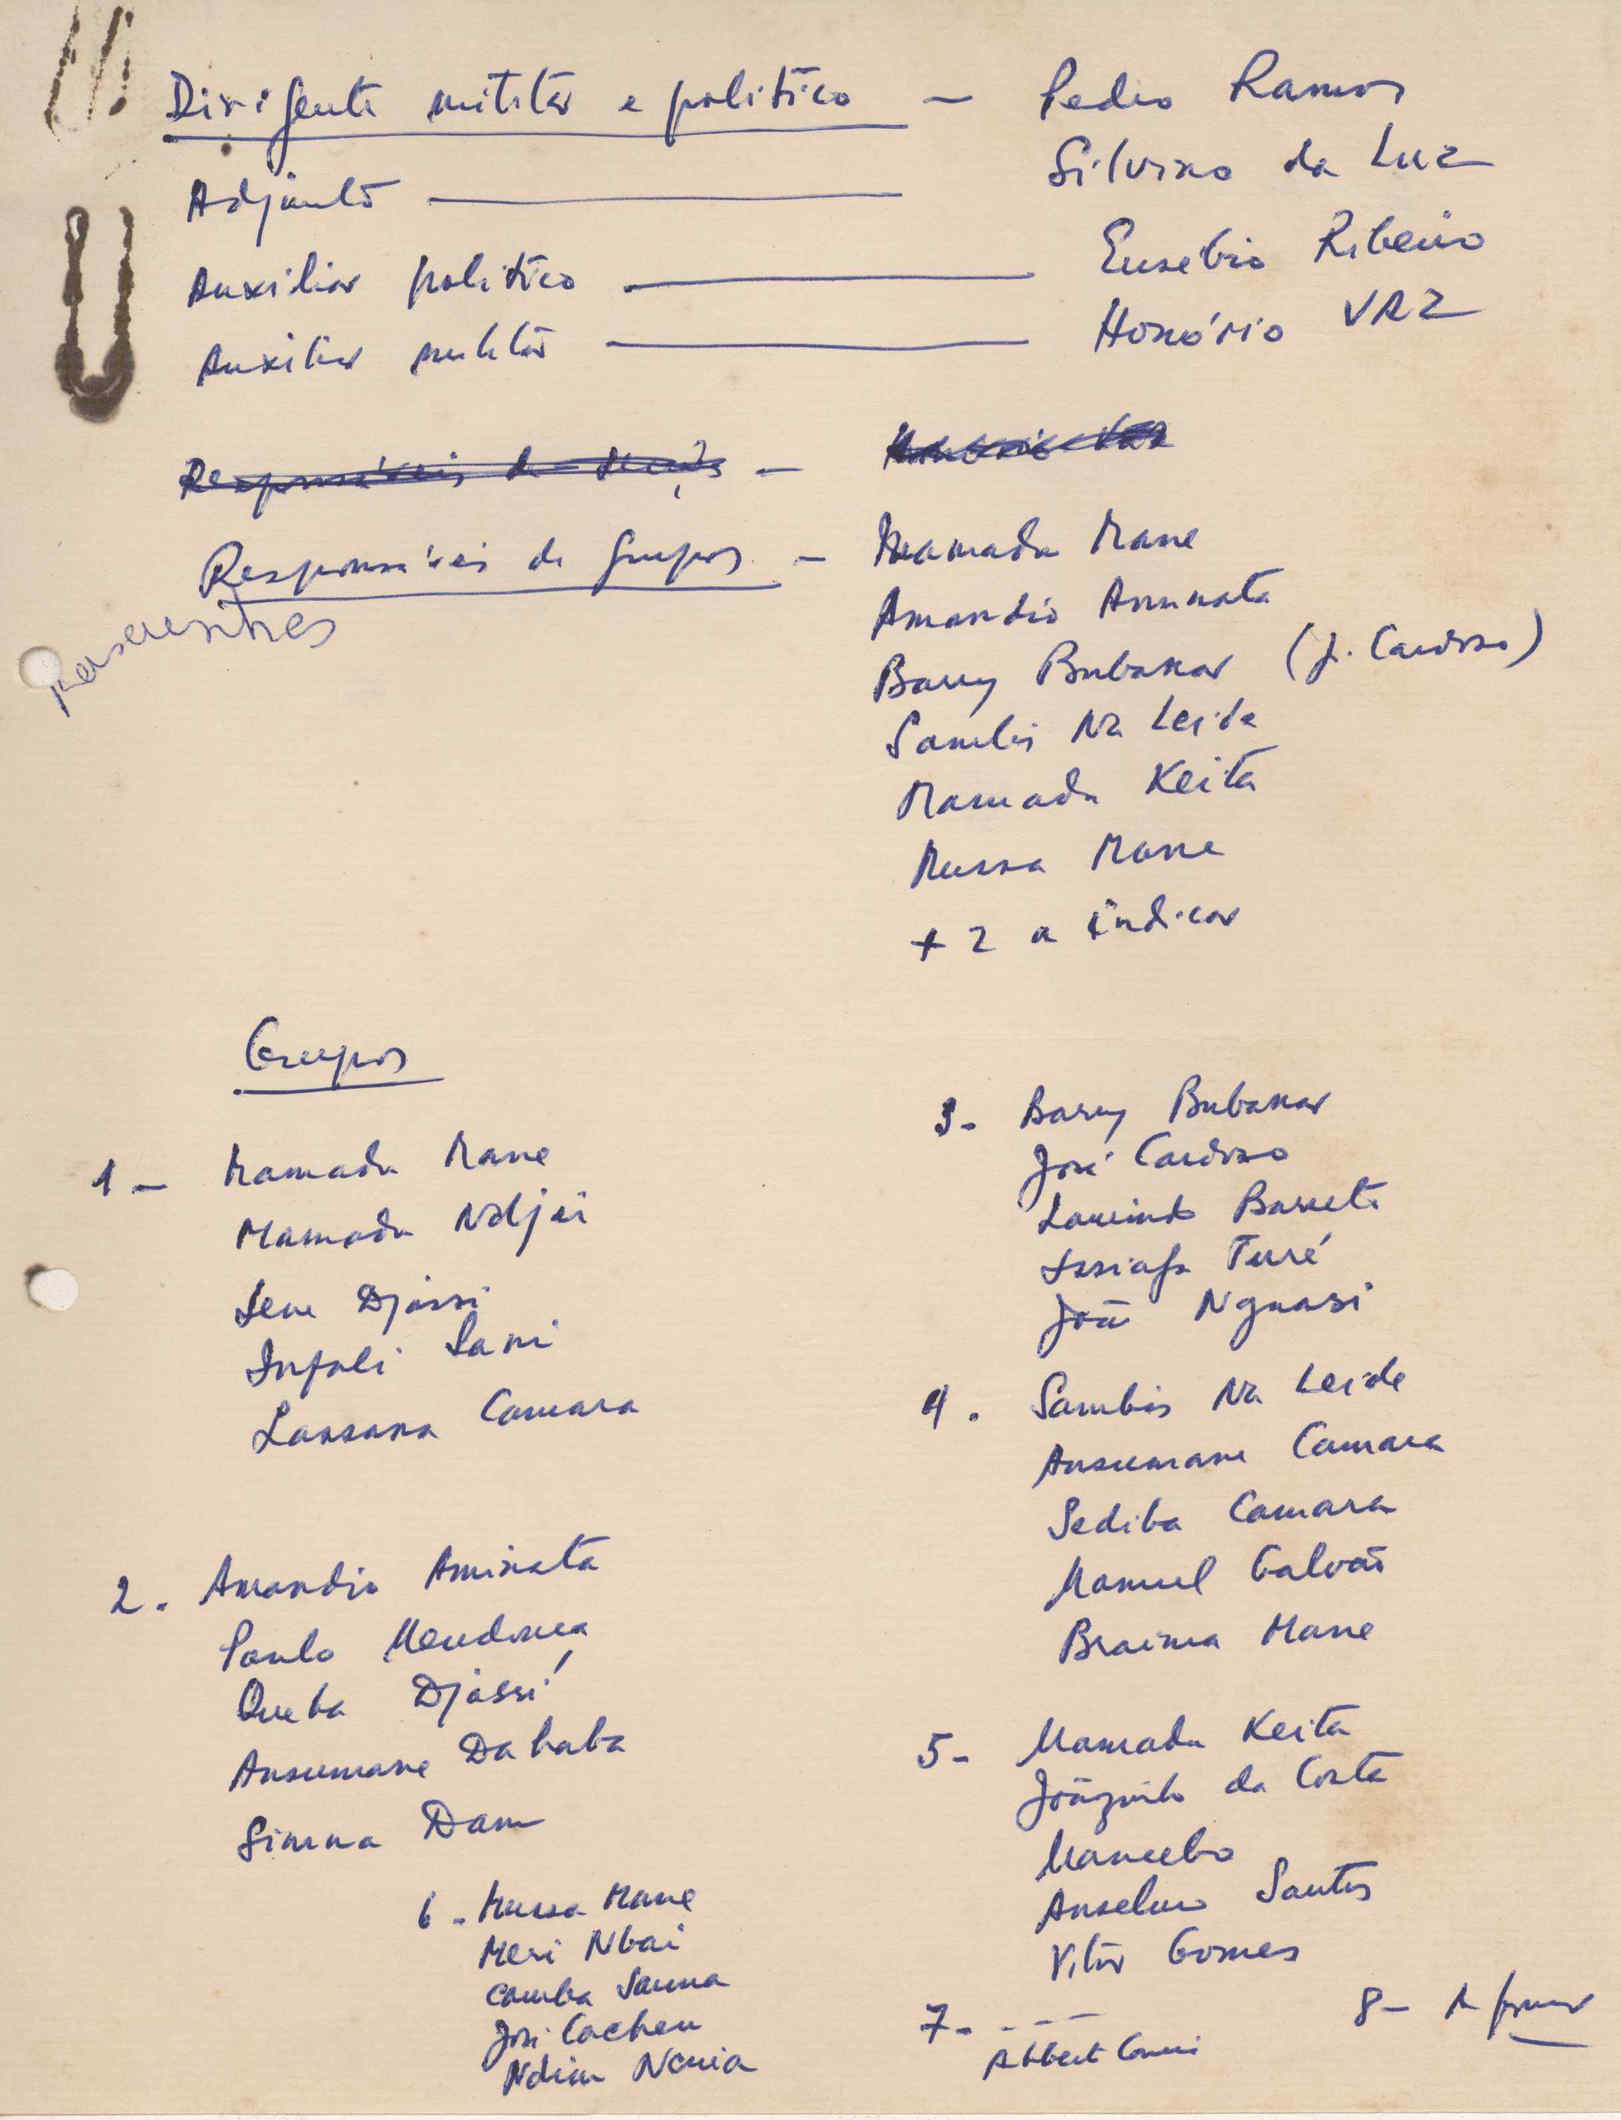 Dirigente militar e politico — Pedro Ramos
Adjunto — Silvino da Luz
Auxiliar politico — Eusebio Ribeiro
Auxiliar militar — Honório VAZ
Responsáveis de
Responsáveis de Grupos — Mamadu Mane
Amandio Aminata
Barry Bubakar (J. Cardoso)
Sambis Na Leide
Mamadu Keita
Mussa Mane
+ 2 a indicar
Grupos
1 - Mamadu Mane
Mamadu Ndjai
Sene Djassi
Infali Sani
Lansana Camara
2. Amandio Aminata
Paulo Mendonça
Queba Djassi
Ansumane Dahaba
Simna Dam
3- Barry Bubakar
José Cardoso
Laurindo Barreto
Issiafa Turé
João Nguasi
4. Sambis Na Leide
Ansumane Camara
Sediba Camara
Manuel Galvão
Braima Mane
5- Mamadu Keita
Joãozinho da Costa
Mancebo
Anselmo Santos
Vitor Gomes
6 - Mussa Mane
Meri Nbai
Camba Sanna
José Cacheu
Ndim
7- - - -
8- A formar